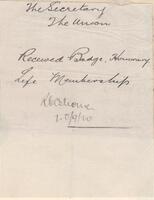 The Secretary
The Union
Received Badge, Honorary
Life Membership